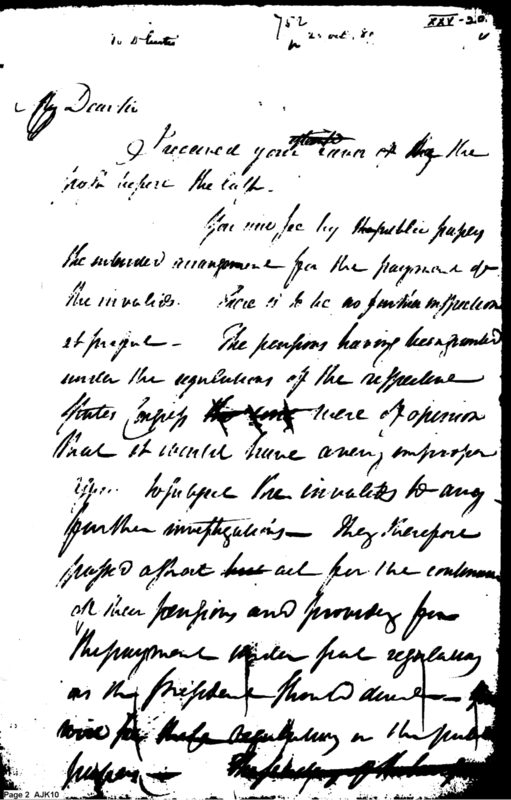 752
XXV-20
21 Oct. 8
My Dear sir
I received your favor of the
before the last.
You will see by the public papers
the intended arrangement for the payment of
the invalids. There is to be no further inspection
at present — The pensions having been granted
under the regulations of the respective
states Congress were of opinion
that it would have a very improper
to subject the invalids to any
further investigations — They therefore
passed a short act for the continuance
of their pensions and providing for
the payment under such regulations
as the President should direct —
regulations in the public
papers —
Page 2 AJK10